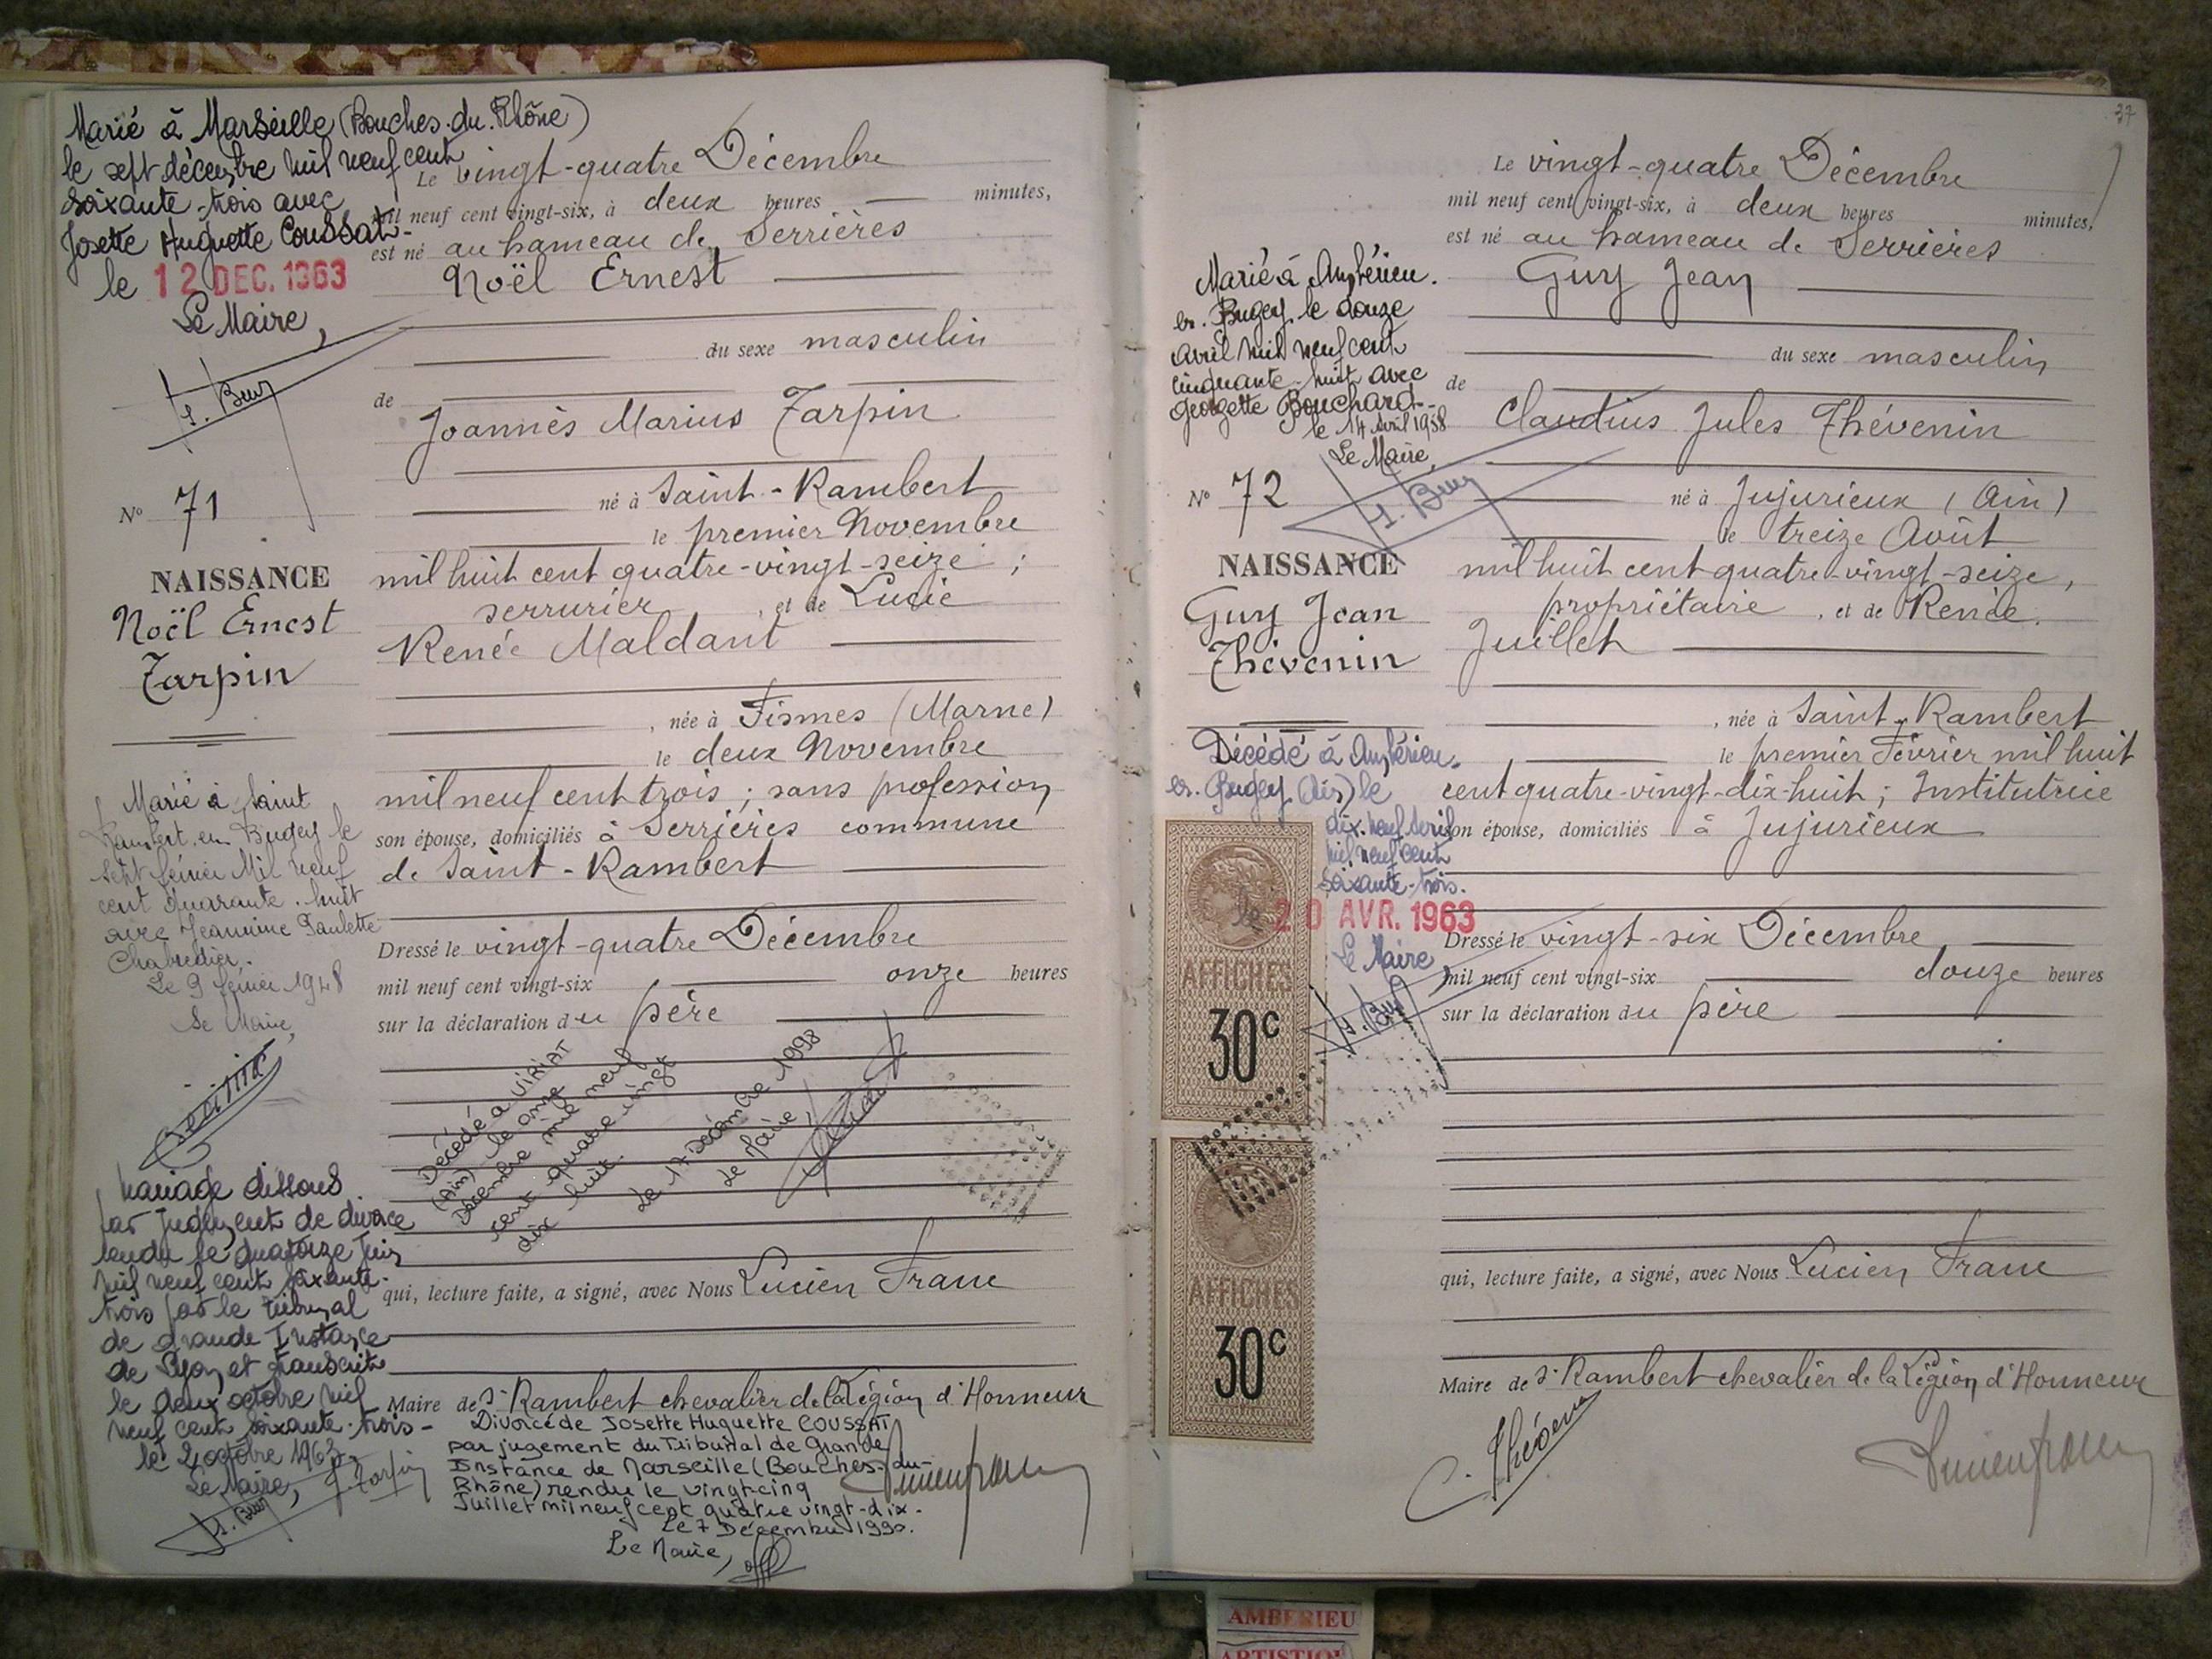 Marié à Marseille (Bouches-du-Rhône)
le sept décembre mil neuf cent
soixante-trois avec
Josette Huguette Coussat-
le 12 DEC. 1963
Le Maire,
J. Buy
N° 71
NAISSANCE
Noël Ernest
Tarpin
Marié à Saint
Rambert en Bugey le
sept février Mil neuf
cent quarante-huit
avec Jeannine Paulette
Chabredier.
Le 9 février 1948
Le Maire,
Mariage dissous
par jugement de divorce
rendu le quatorze Juin
mil neuf cent soixante-
trois par le tribunal
de grande Instance
de Lyon et transcrit
le deux octobre mil
neuf cent soixante-trois-
le 2 octobre 1963
Le Maire,
J. Buy
J. Tarpin
Le vingt-quatre Décembre
mil neuf cent vingt-six, à deux heures — minutes,
est né au hameau de Serrières
Noël Ernest
du sexe masculin
de
Joannès Marius Tarpin
né à Saint-Rambert
le premier Novembre
mil huit cent quatre-vingt-seize ;
serrurier, et de Lucie
Renée Maldant
, née à Fismes (Marne)
le deux Novembre
mil neuf cent trois ; sans profession
son épouse, domiciliés à Serrières commune
de Saint-Rambert
Dressé le vingt-quatre Décembre
mil neuf cent vingt-six — onze heures
sur la déclaration du père
Décédé à VIRIAT
(Ain) le onze
Décembre mil neuf
cent quatre vingt
dix huit.
Le 17 Décembre 1998
Le Maire,
qui, lecture faite, a signé, avec Nous Lucien Franc
Maire de St Rambert chevalier de la Légion d'Honneur
Divorcé de Josette Huguette COUSSAT
par jugement du Tribunal de Grande
Instance de Marseille (Bouches-du-
Rhône) rendu le vingt-cinq
Juillet mil neuf cent quatre vingt-dix.
Le 7 Décembre 1990.
Le Maire,
Lucien Franc
37
Le vingt-quatre Décembre
mil neuf cent vingt-six, à deux heures minutes,
est né au hameau de Serrières
Guy Jean
du sexe masculin
de
Claudius Jules Thévenin
né à Jujurieux (Ain)
le treize Août
mil huit cent quatre-vingt-seize,
propriétaire, et de Renée
Juillet
, née à Saint-Rambert
le premier Février mil huit
cent quatre-vingt-dix-huit ; Institutrice
son épouse, domiciliés à Jujurieux
Dressé le vingt-six Décembre
mil neuf cent vingt-six — douze heures
sur la déclaration du père
qui, lecture faite, a signé, avec Nous Lucien Franc
Maire de St Rambert chevalier de la Légion d'Honneur
C. Thévenin
Lucien Franc
Marié à Ambérieu-
en-Bugey le douze
avril mil neuf cent
cinquante-huit avec
Georgette Bouchard-
le 14 Avril 1958
Le Maire,
J. Buy
N° 72
NAISSANCE
Guy Jean
Thévenin
Décédé à Ambérieu-
en-Bugey (Ain) le
dix-neuf avril
mil neuf cent
soixante-trois.
le 20 AVR. 1963
Le Maire
J. Buy
AFFICHES
30c
AFFICHES
30c
AMBERIEU